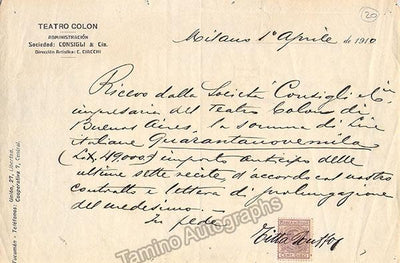 TEATRO COLON
ADMINISTRACIÓN
Sociedad: CONSIGLI & Cia.
Dirección Artística: C. CIACCHI
20
Milano 1º Aprile de 1910
Ricevo dalla Società Consigli e Cia
impresaria del Teatro Colon di
Buenos Aires, la somma di Lire
italiane Quarantanovemila
(Lit. 49000) importo anticipo delle
ultime sette recite d'accordo col nostro
contratto e lettera di prolungazione
del medesimo.
In fede
Titta Ruffo
Tucumán - Teléfonos: Unión, 27, Libertad.
Cooperativa, Central.
Tamino Autographs